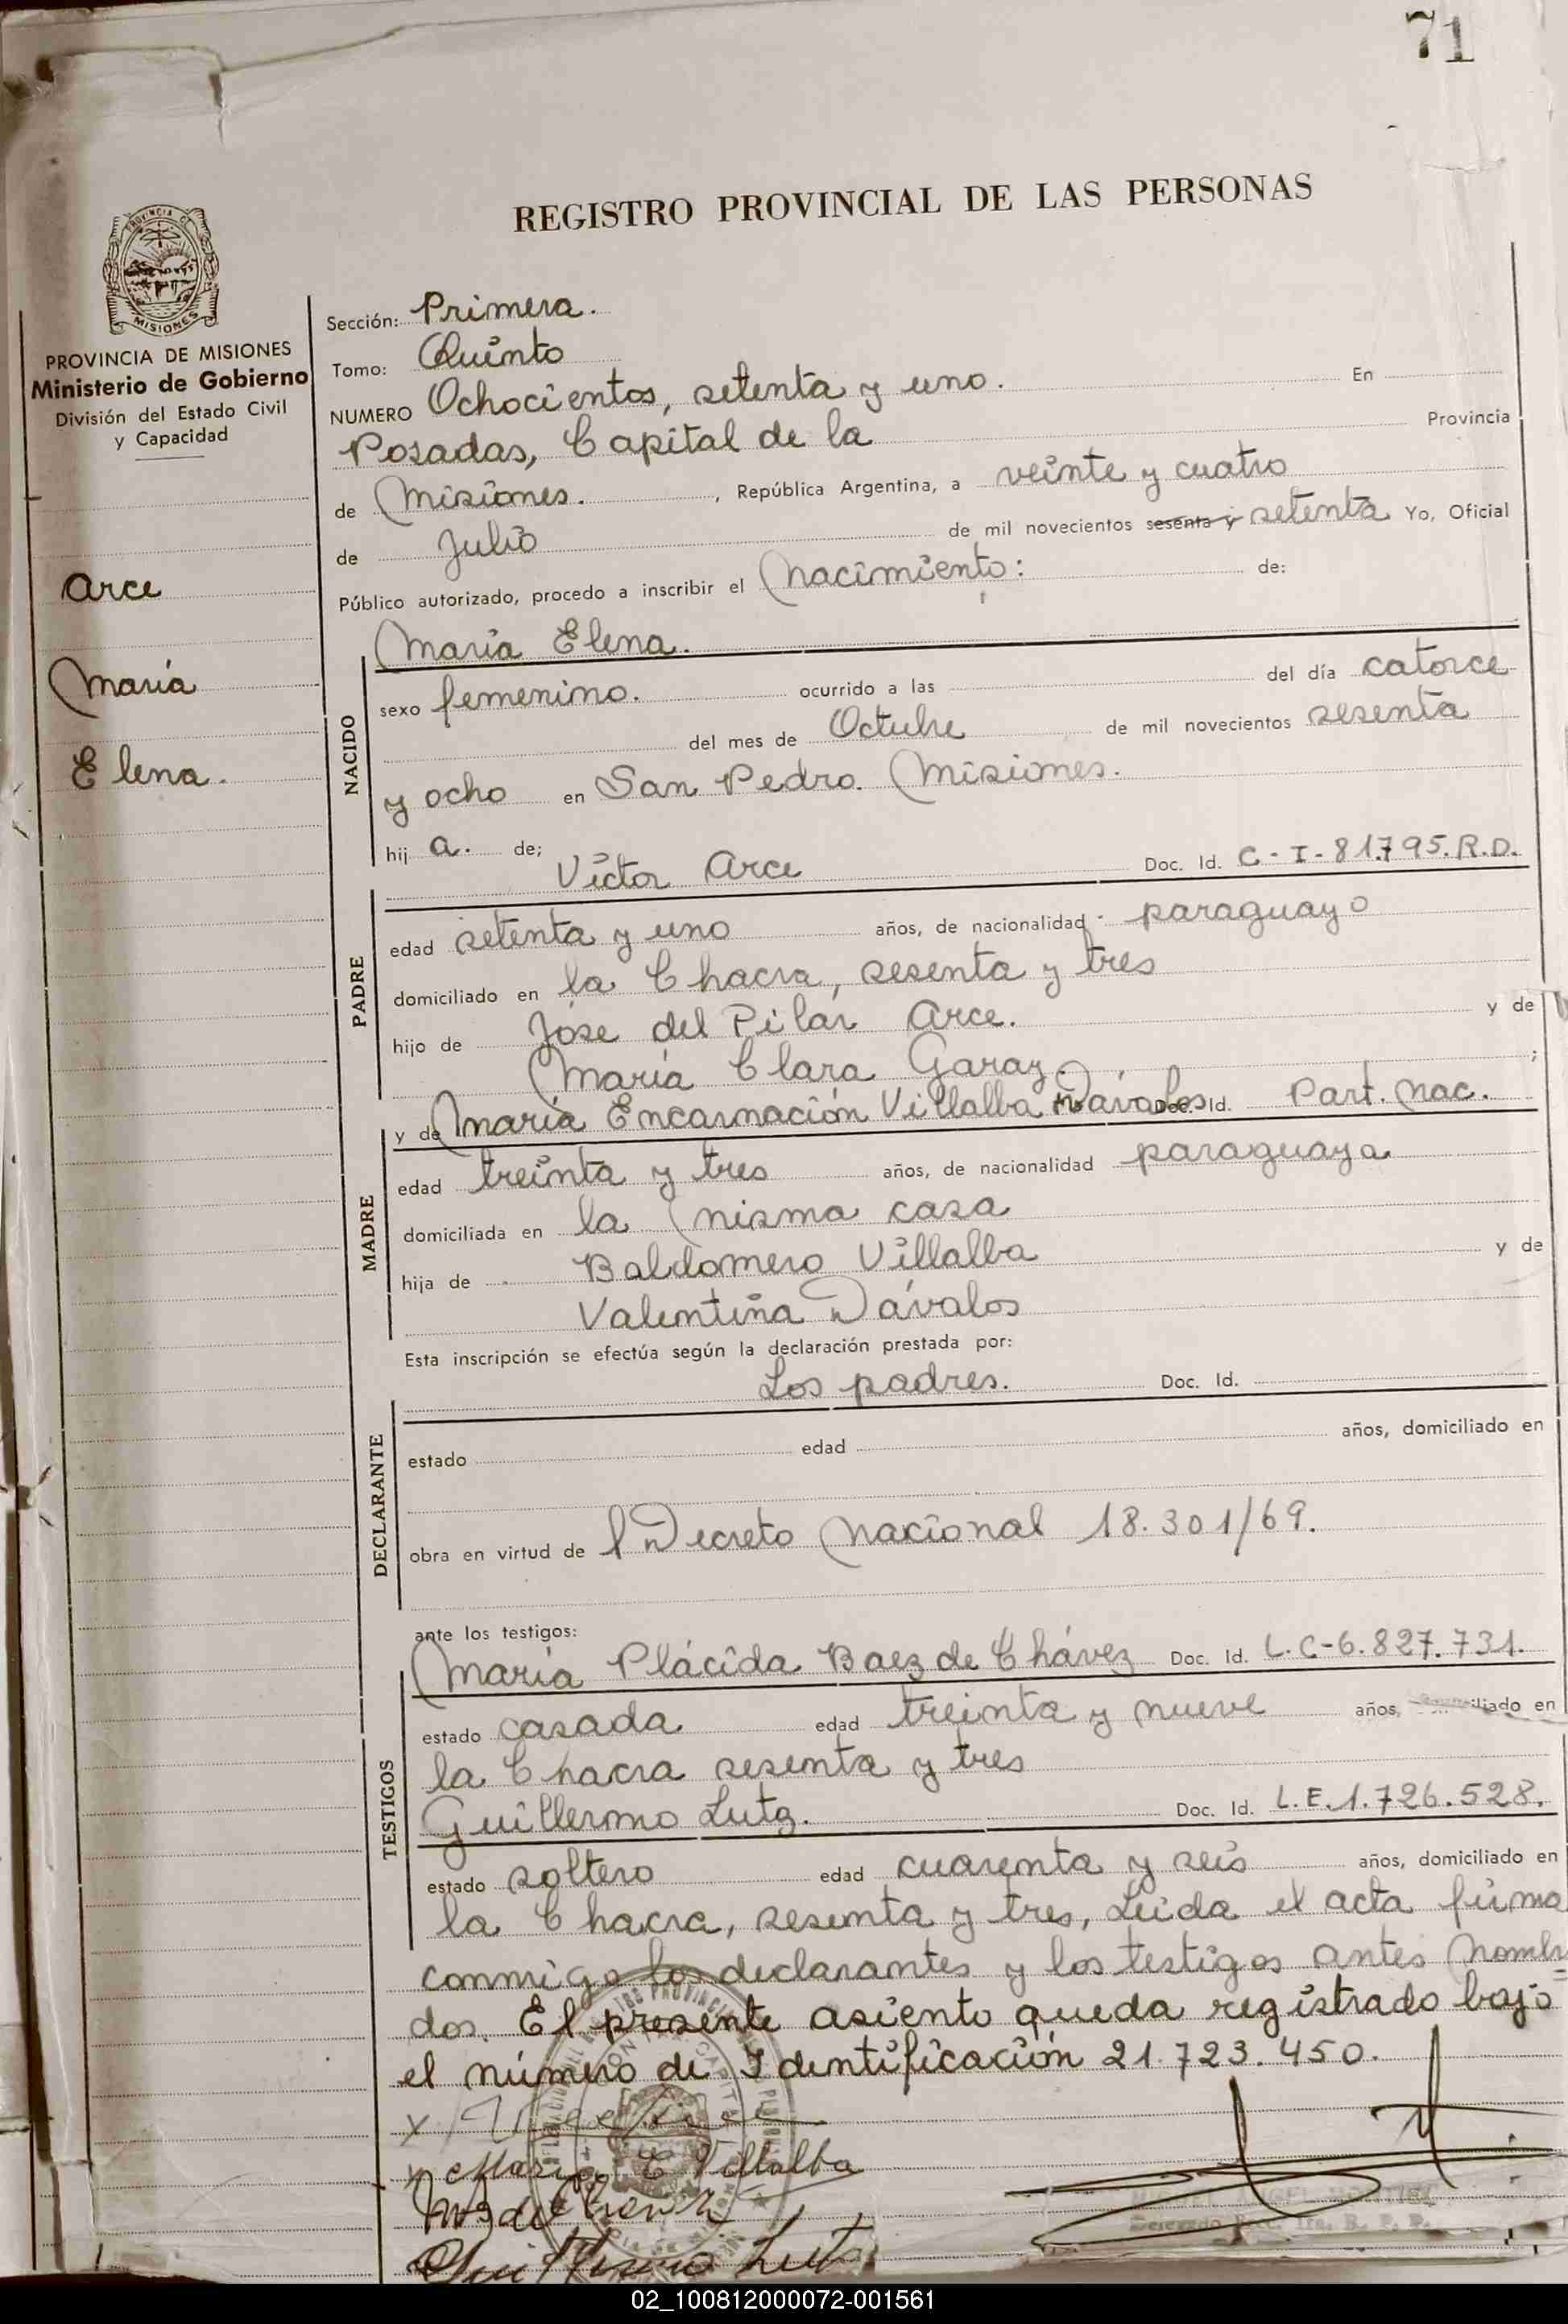 71
REGISTRO PROVINCIAL DE LAS PERSONAS
PROVINCIA DE MISIONES
Ministerio de Gobierno
División del Estado Civil
y Capacidad
Arce
María
Elena.
Sección: Primera.
Tomo: Quinto
NUMERO Ochocientos, setenta y uno. En
Posadas, Capital de la Provincia
de Misiones. , República Argentina, a veinte y cuatro
de Julio de mil novecientos sesenta y setenta Yo, Oficial
Público autorizado, procedo a inscribir el Nacimiento: de:
María Elena.
NACIDO
sexo femenino. ocurrido a las del día catorce
del mes de Octubre de mil novecientos sesenta
y ocho en San Pedro. Misiones.
hij a. de;
Víctor Arce Doc. Id. C-I-81.795.R.D.
PADRE
edad setenta y uno años, de nacionalidad paraguayo
domiciliado en la Chacra, sesenta y tres
hijo de José del Pilar Arce. y de
María Clara Garay. ;
y de María Encarnación Villalba Dávalos Doc. Id. Part. Nac.
MADRE
edad treinta y tres años, de nacionalidad paraguaya
domiciliada en la misma casa
hija de Baldomero Villalba y de
Valentina Dávalos
Esta inscripción se efectúa según la declaración prestada por:
Los padres. Doc. Id.
DECLARANTE
estado edad años, domiciliado en
obra en virtud de l Decreto Nacional 18.301/69.
ante los testigos:
María Plácida Baez de Chávez Doc. Id. L.C-6.827.731.
TESTIGOS
estado casada edad treinta y nueve años, domiciliado en
la Chacra sesenta y tres
Guillermo Lutz. Doc. Id. L.E.1.726.528.
estado soltero edad cuarenta y seis años, domiciliado en
la Chacra, sesenta y tres, Leída el acta firma
conmigo los declarantes y los testigos antes nombr=
dos. El presente asiento queda registrado bajo
el número de Identificación 21.723.450.
x
x Maria E Villalba
Guillermo Lutz
02_100812000072-001561